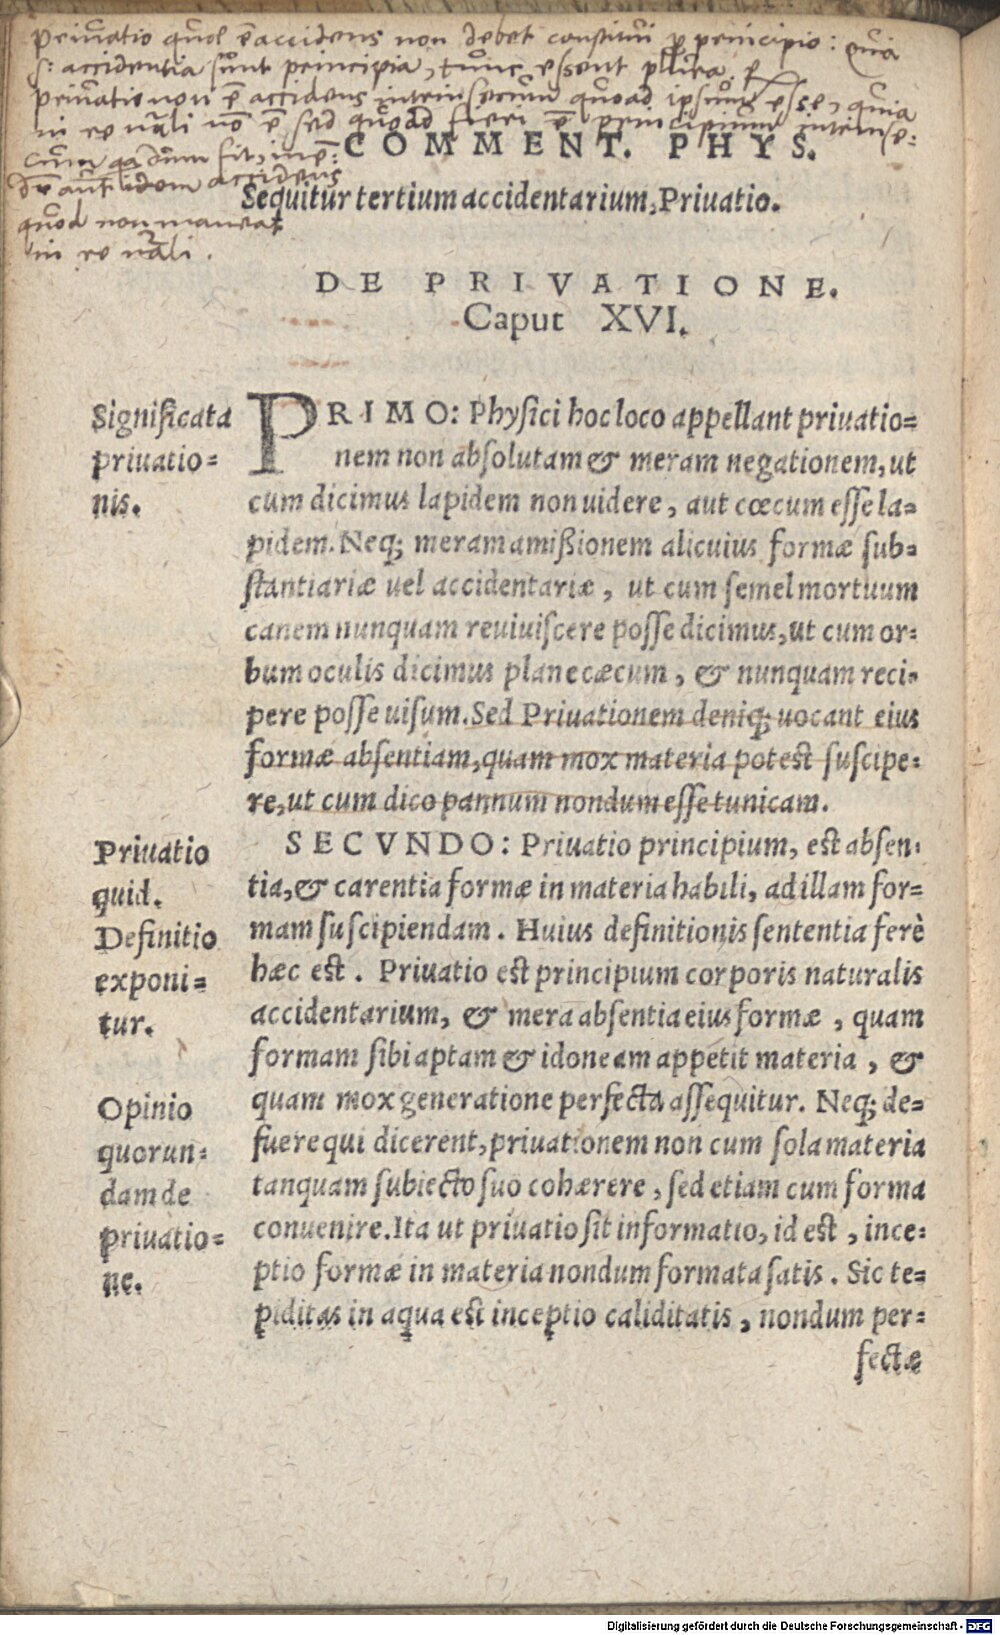 Priuatio quod ē accidens non debet constitui p principio: quia
s: accidentia sunt principia, tunc essent plura. R
Priuatio non ē accidens intrinsecum quoad ipsum esse, quia
in re nāli nō ē, sed quoad fieri ē principium intrinse:
cum dum fit, ens:
aūt idem accidens
quod non maneat
in re nāli.
COMMENT. PHYS.
Sequitur tertium accidentarium, Priuatio.
DE PRIVATIONE.
Caput XVI.
Significata
priuatio=
nis.
PRIMO: Physici hoc loco appellant priuatio=
nem non absolutam & meram negationem, ut
cum dicimus lapidem non uidere, aut cœcum esse la=
pidem. Neq; meram amißionem alicuius formæ sub=
stantiariæ uel accidentariæ, ut cum semel mortuum
canem nunquam reuiuiscere posse dicimus, ut cum or=
bum oculis dicimus plane cæcum, & nunquam reci=
pere posse uisum. Sed Priuationem deniq; uocant eius
formæ absentiam, quam mox materia potest suscipe=
re, ut cum dico pannum nondum esse tunicam.
Priuatio
quid.
Definitio
exponi=
tur.
SECVNDO: Priuatio principium, est absen=
tia, & carentia formæ in materia habili, ad illam for=
mam suscipiendam. Huius definitionis sententia ferè
hæc est. Priuatio est principium corporis naturalis
accidentarium, & mera absentia eius formæ, quam
formam sibi aptam & idoneam appetit materia, &
quam mox generatione perfecta assequitur. Neq; de=
fuere qui dicerent, priuationem non cum sola materia
tanquam subiecto suo cohærere, sed etiam cum forma
conuenire. Ita ut priuatio sit informatio, id est, ince=
ptio formæ in materia nondum formata satis. Sic te=
piditas in aqua est inceptio caliditatis, nondum per=
Opinio
quorun=
dam de
priuatio=
ne.
fectæ
Digitalisierung gefördert durch die Deutsche Forschungsgemeinschaft - DFG